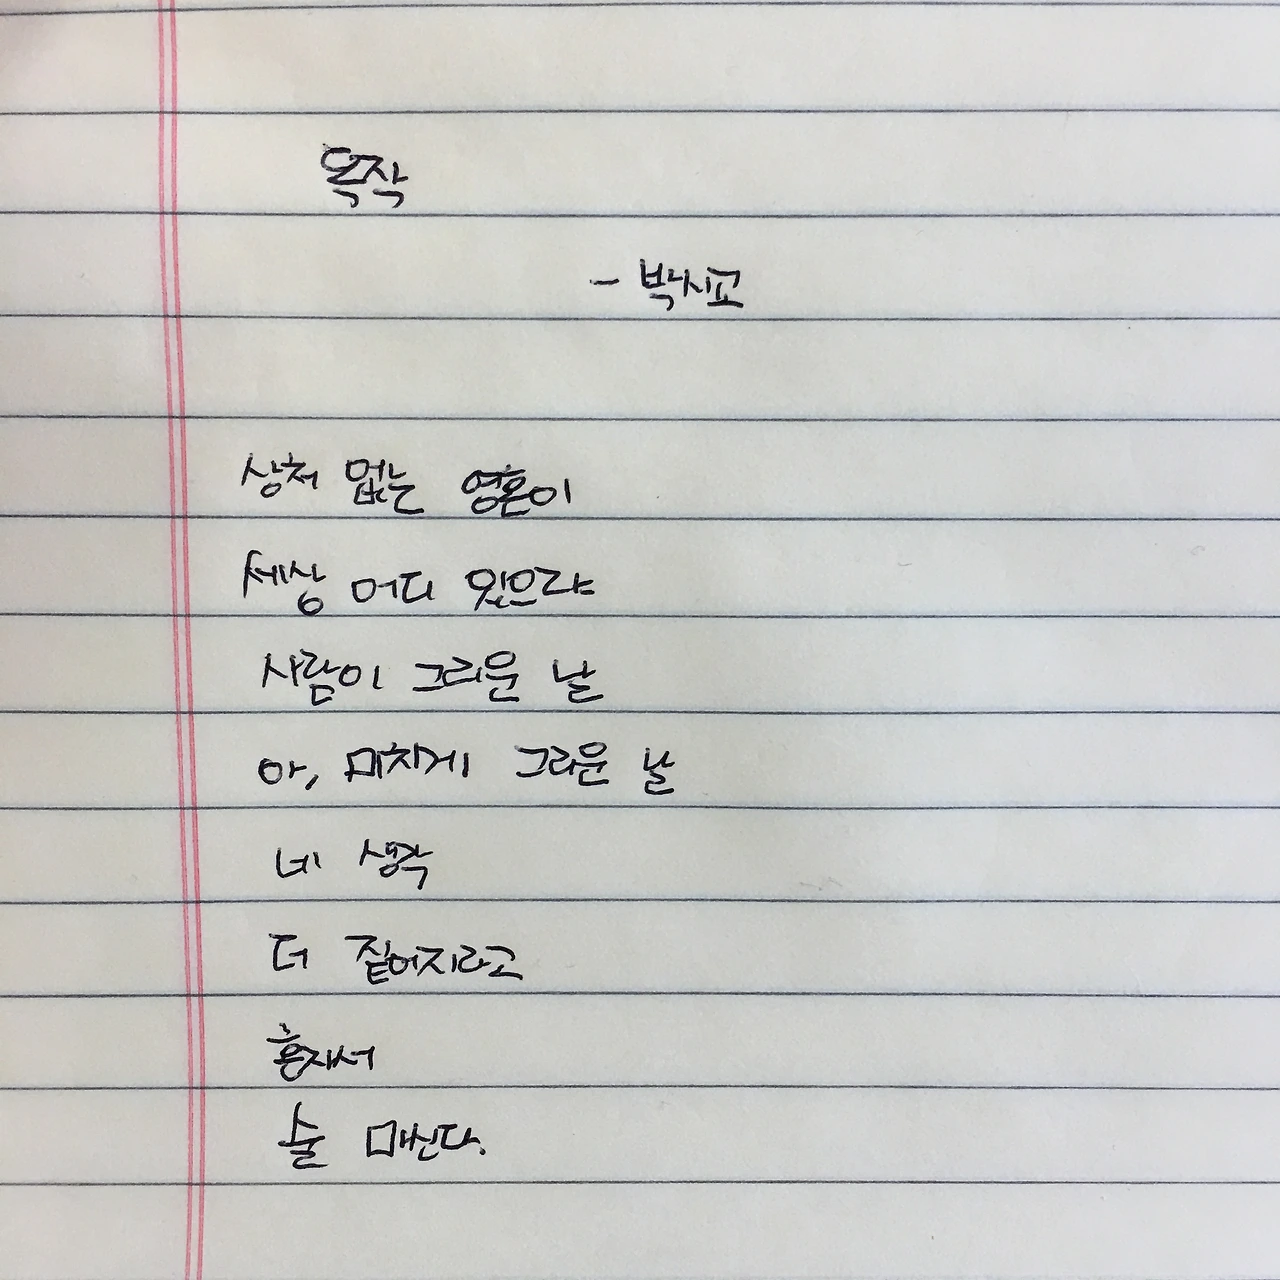 독작
- 박시교
상처 없는 영혼이
세상 어디 있으랴
사람이 그리운 날
아, 미치게 그리운 날
네 생각
더 짙어지라고
혼자서
술 마신다.